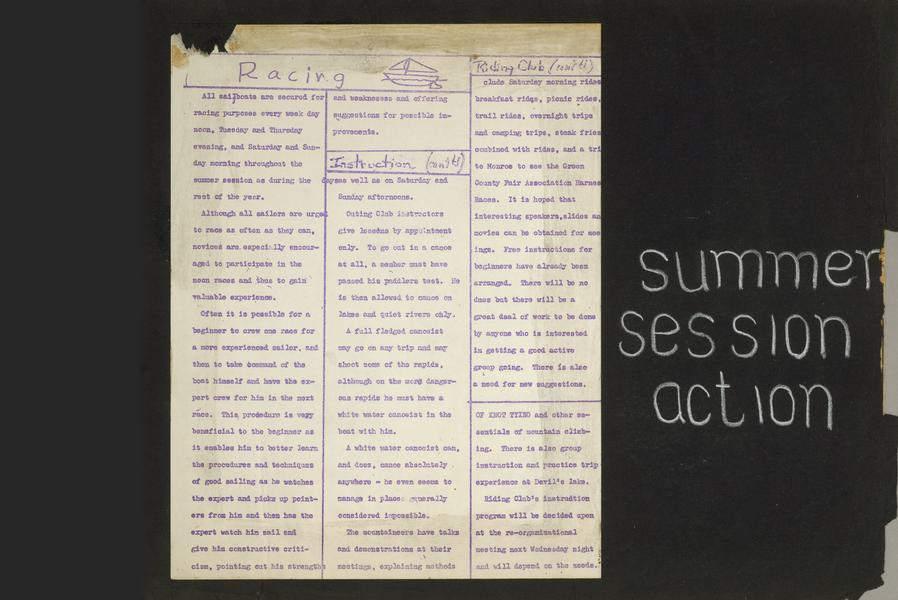 Racing
All sailboats are secured for
racing purposes every week day
noon, Tuesday and Thursday
evening, and Saturday and Sun-
day morning throughout the
summer session as during the
rest of the year.
Although all sailors are urged
to race as often as they can,
novices are especially encour-
aged to participate in the
noon races and thus to gain
valuable experience.
Often it is possible for a
beginner to crew one race for
a more experienced sailor, and
then to take command of the
boat himself and have the ex-
pert crew for him in the next
race. This procedure is very
beneficial to the beginner as
it enables him to better learn
the procedures and techniques
of good sailing as he watches
the expert and picks up point-
ers from him and then has the
expert watch him sail and
give him constructive criti-
cism, pointing out his strengths
and weaknesses and offering
suggestions for possible im-
provements.
Instruction (con't'd)
days as well as on Saturday and
Sunday afternoons.
Outing Club instructors
give lessons by appointment
only. To go out in a canoe
at all, a member must have
passed his paddlers test. He
is then allowed to canoe on
lakes and quiet rivers only.
A full fledged canoeist
may go on any trip and may
shoot some of the rapids,
although on the more danger-
ous rapids he must have a
white water canoeist in the
boat with him.
A white water canoeist can,
and does, canoe absolutely
anywhere - he even seems to
manage in places generally
considered impossible.
The mountaineers have talks
and demonstrations at their
meetings, explaining methods
Riding Club (con't'd)
clude Saturday morning rides
breakfast rides, picnic rides,
trail rides, overnight trips
and camping trips, steak fries
combined with rides, and a tri
to Monroe to see the Green
County Fair Association Harnes
Races. It is hoped that
interesting speakers, slides an
movies can be obtained for mee
ings. Free instructions for
beginners have already been
arranged. There will be no
dues but there will be a
great deal of work to be done
by anyone who is interested
in getting a good active
group going. There is also
a need for new suggestions.
OF KNOT TYING and other es-
sentials of mountain climb-
ing. There is also group
instruction and practice trip
experience at Devil's lake.
Riding Club's instruction
program will be decided upon
at the re-organizational
meeting next Wednesday night
and will depend on the needs.
summer
session
action